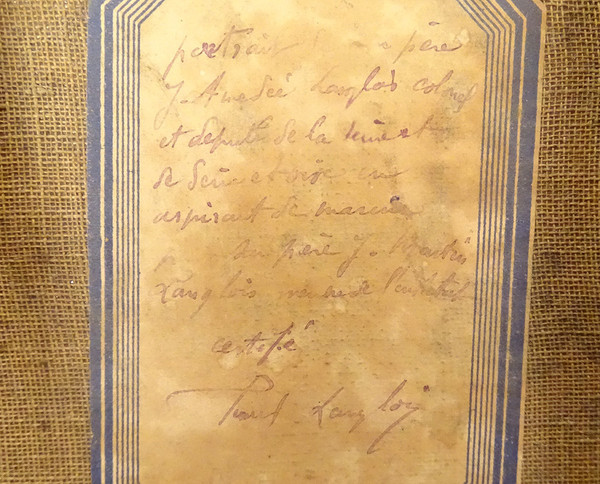 portrait père
J. Amedée Langlois colonel
et député de la Seine et
de Seine et oise en
aspirant de marine
père J. Martin
Langlois de l'institut
certifié
Paul Langlois